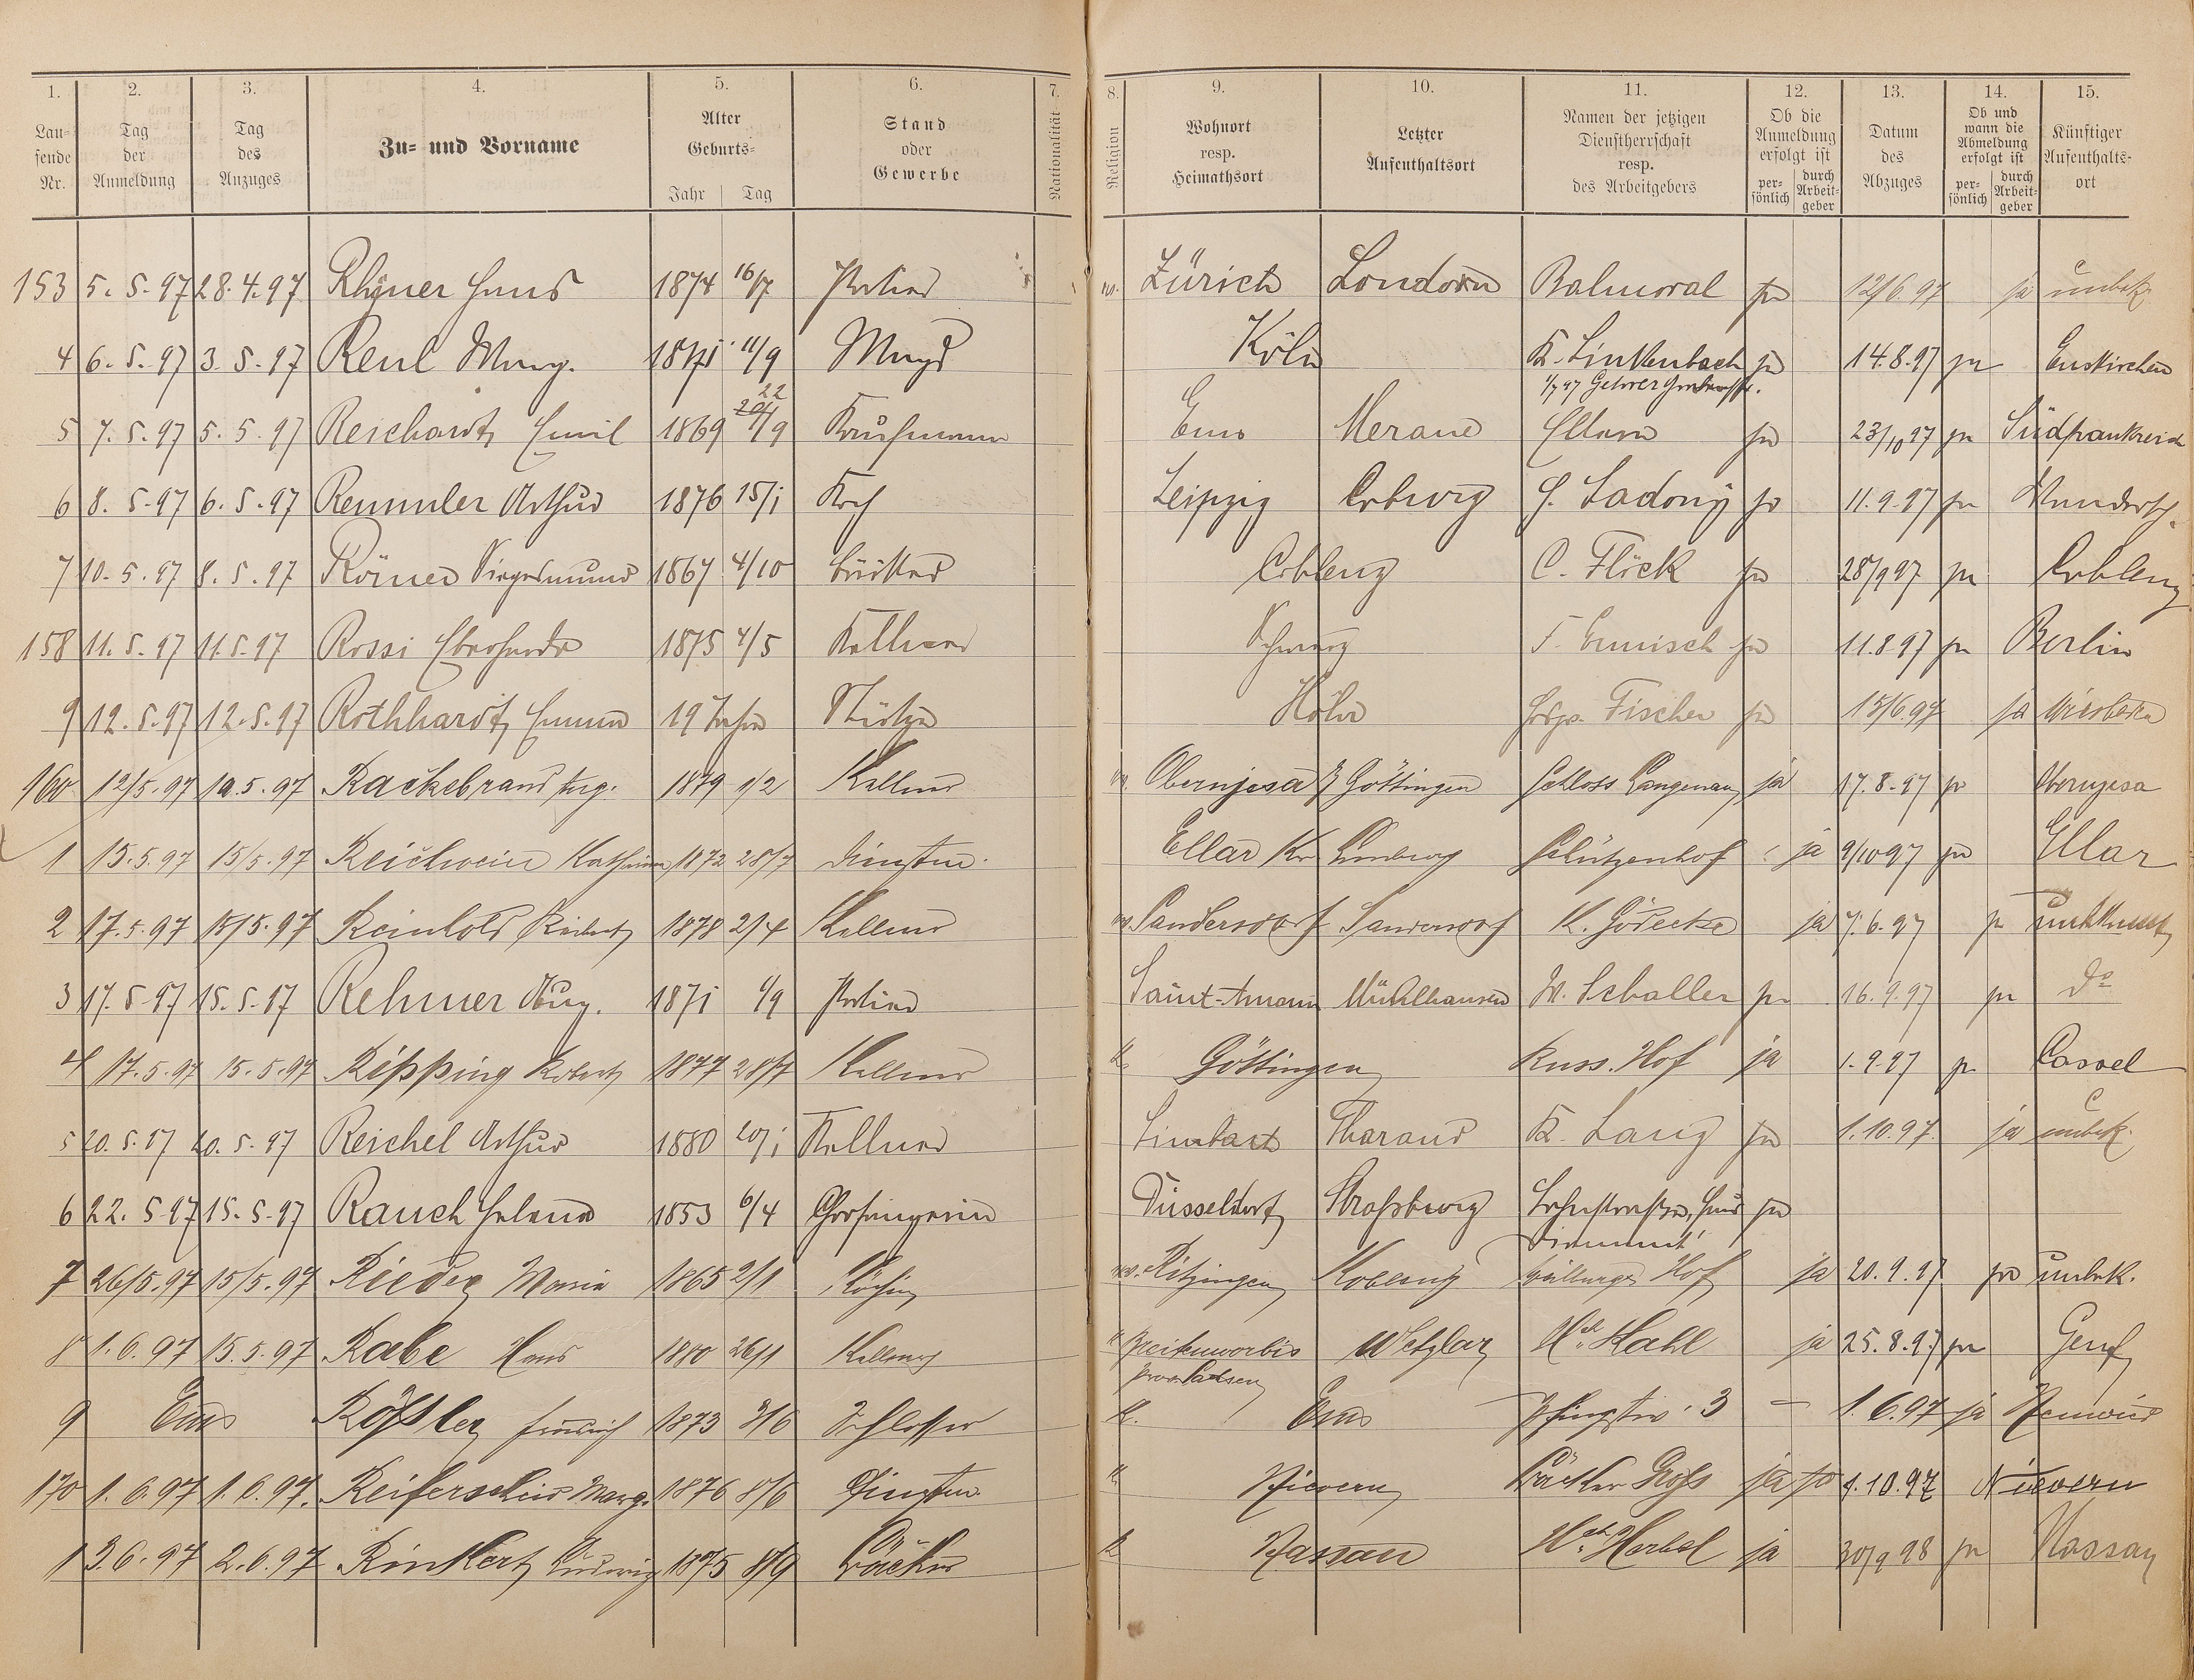 1. 2. 3. 4. 5. 6. 7. 8. 9. 10. 11. 12. 13. 14. 15.
Lau-
fende
Nr.
Tag
der
Anmeldung
Tag
des
Anzuges
Zu- und Vorname
Alter
Geburts-
Jahr Tag
Stand
oder
Gewerbe
Nationalität
Religion
Wohnort
resp.
Heimathsort
Letzter
Aufenthaltsort
Namen der jetzigen
Dienstherrschaft
resp.
des Arbeitgebers
Ob die
Anmeldung
erfolgt ist
per-
sönlich
durch
Arbeit-
geber
Datum
des
Abzuges
Ob und
wann die
Abmeldung
erfolgt ist
per-
sönlich
durch
Arbeit-
geber
Künftiger
Aufenthalts-
ort
153 5.5.97 28.4.97 Rhyner Hans 1874 16/7 Portier Zürich London Balmoral ja 12/6.97 ja unbek.
4 6.5.97 3.5.97 Reul Marg. 11/9 Magd Köln K. Linkenbach ja 14.8.97 ja Euskirchen
22
5 7.5.97 5.5.97 Reichardt Emil 1869 20/9 Kaufmann Ems Merane ja 23/10 97 ja Südfrankreich
6 8.5.97 6.5.97 Remmler Arthur 1876 15/1 Koch Leipzig Coburg ja 11.9.97 ja
7 10.5.97 8.5.97 Römer Siegesmund 1867 4/10 Coblenz C. Flöck ja 28/9 97 ja Coblenz
158 11.5.97 11.5.97 Rossi 1875 4/5 Kellner ja 11.8.97 ja Berlin
9 12.5.97 12.5.97 Rothhardt Emma 19 Jahre Stütze Fischer ja 15/6.97 ja Wiesbaden
160 12/5.97 10.5.97 Rackebrand Aug. 1879 1/2 Kellner Obernjesa Göttingen Schloss Langenau ja 17.8.97 ja Obernjesa
1 15.5.97 15/5.97 Reichwein 1872 28/7 Dienstm. Ellar Kr Limburg Schützenhof ja 9/10 97 ja Ellar
2 17.5.97 15/5.97 Reinhold 1878 2/4 Kellner Sandersdorf Sandersdorf K. Gödecke ja 7.6.97 ja unbekannt
3 17.5.97 15.5.97 Rehmer Aug. 1871 1/9 Portier Saint-Amarin Mühlhausen W. Schaller ja 16.9.97 ja do
4 17.5.97 15.5.97 Ripping Robert 1877 28/7 Kellner k. Göttingen Russ. Hof ja 1.9.97 ja Cassel
5 20.5.97 20.5.97 Reichel Arthur 1880 20/1 Kellner Tharand K. Lang ja 1.10.97 ja unbek.
6 22.5.97 15.5.97 Rauch Helene 1853 6/4 Chorsängerin Düsseldorf Straßburg ja
7 26/5.97 15/5.97 Rieder Maria 1865 2/1 Köchin Kitzingen Koblenz Hof ja 20.9.97 ja unbek.
8 1.6.97 15.5.97 Rabe Hans 1880 26/1 Kellner Breitenworbis Wetzlar Hch Hahl ja 25.8.97 ja Genf
Prov Sachsen
9 Ems Rößler Friedrich 1873 3/6 Schlosser k. Ems 3 — 1.6.97 ja Neuwied
170 1.6.97 1.6.97. Reiferscheid Marg. 1876 8/6 Dienstm. k Nievern Bäcker Groß ja ja 1.10.97 Nievern
1 3.6.97 2.6.97 Rinkert Ludwig 1875 8/9 Bäcker k Nassau Hch Herbel ja 30/9 98 ja Nassau